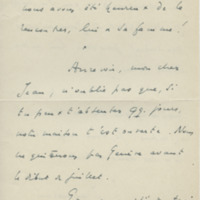 nous avons été heureux de le
rencontrer, lui et sa femme !
*
Au revoir, mon cher
Jean, n'oublie pas que, si
tu peux t'absenter qq. jours,
notre maison t'est ouverte. Nous
ne quitterons pas Genève avant
le début de juillet.